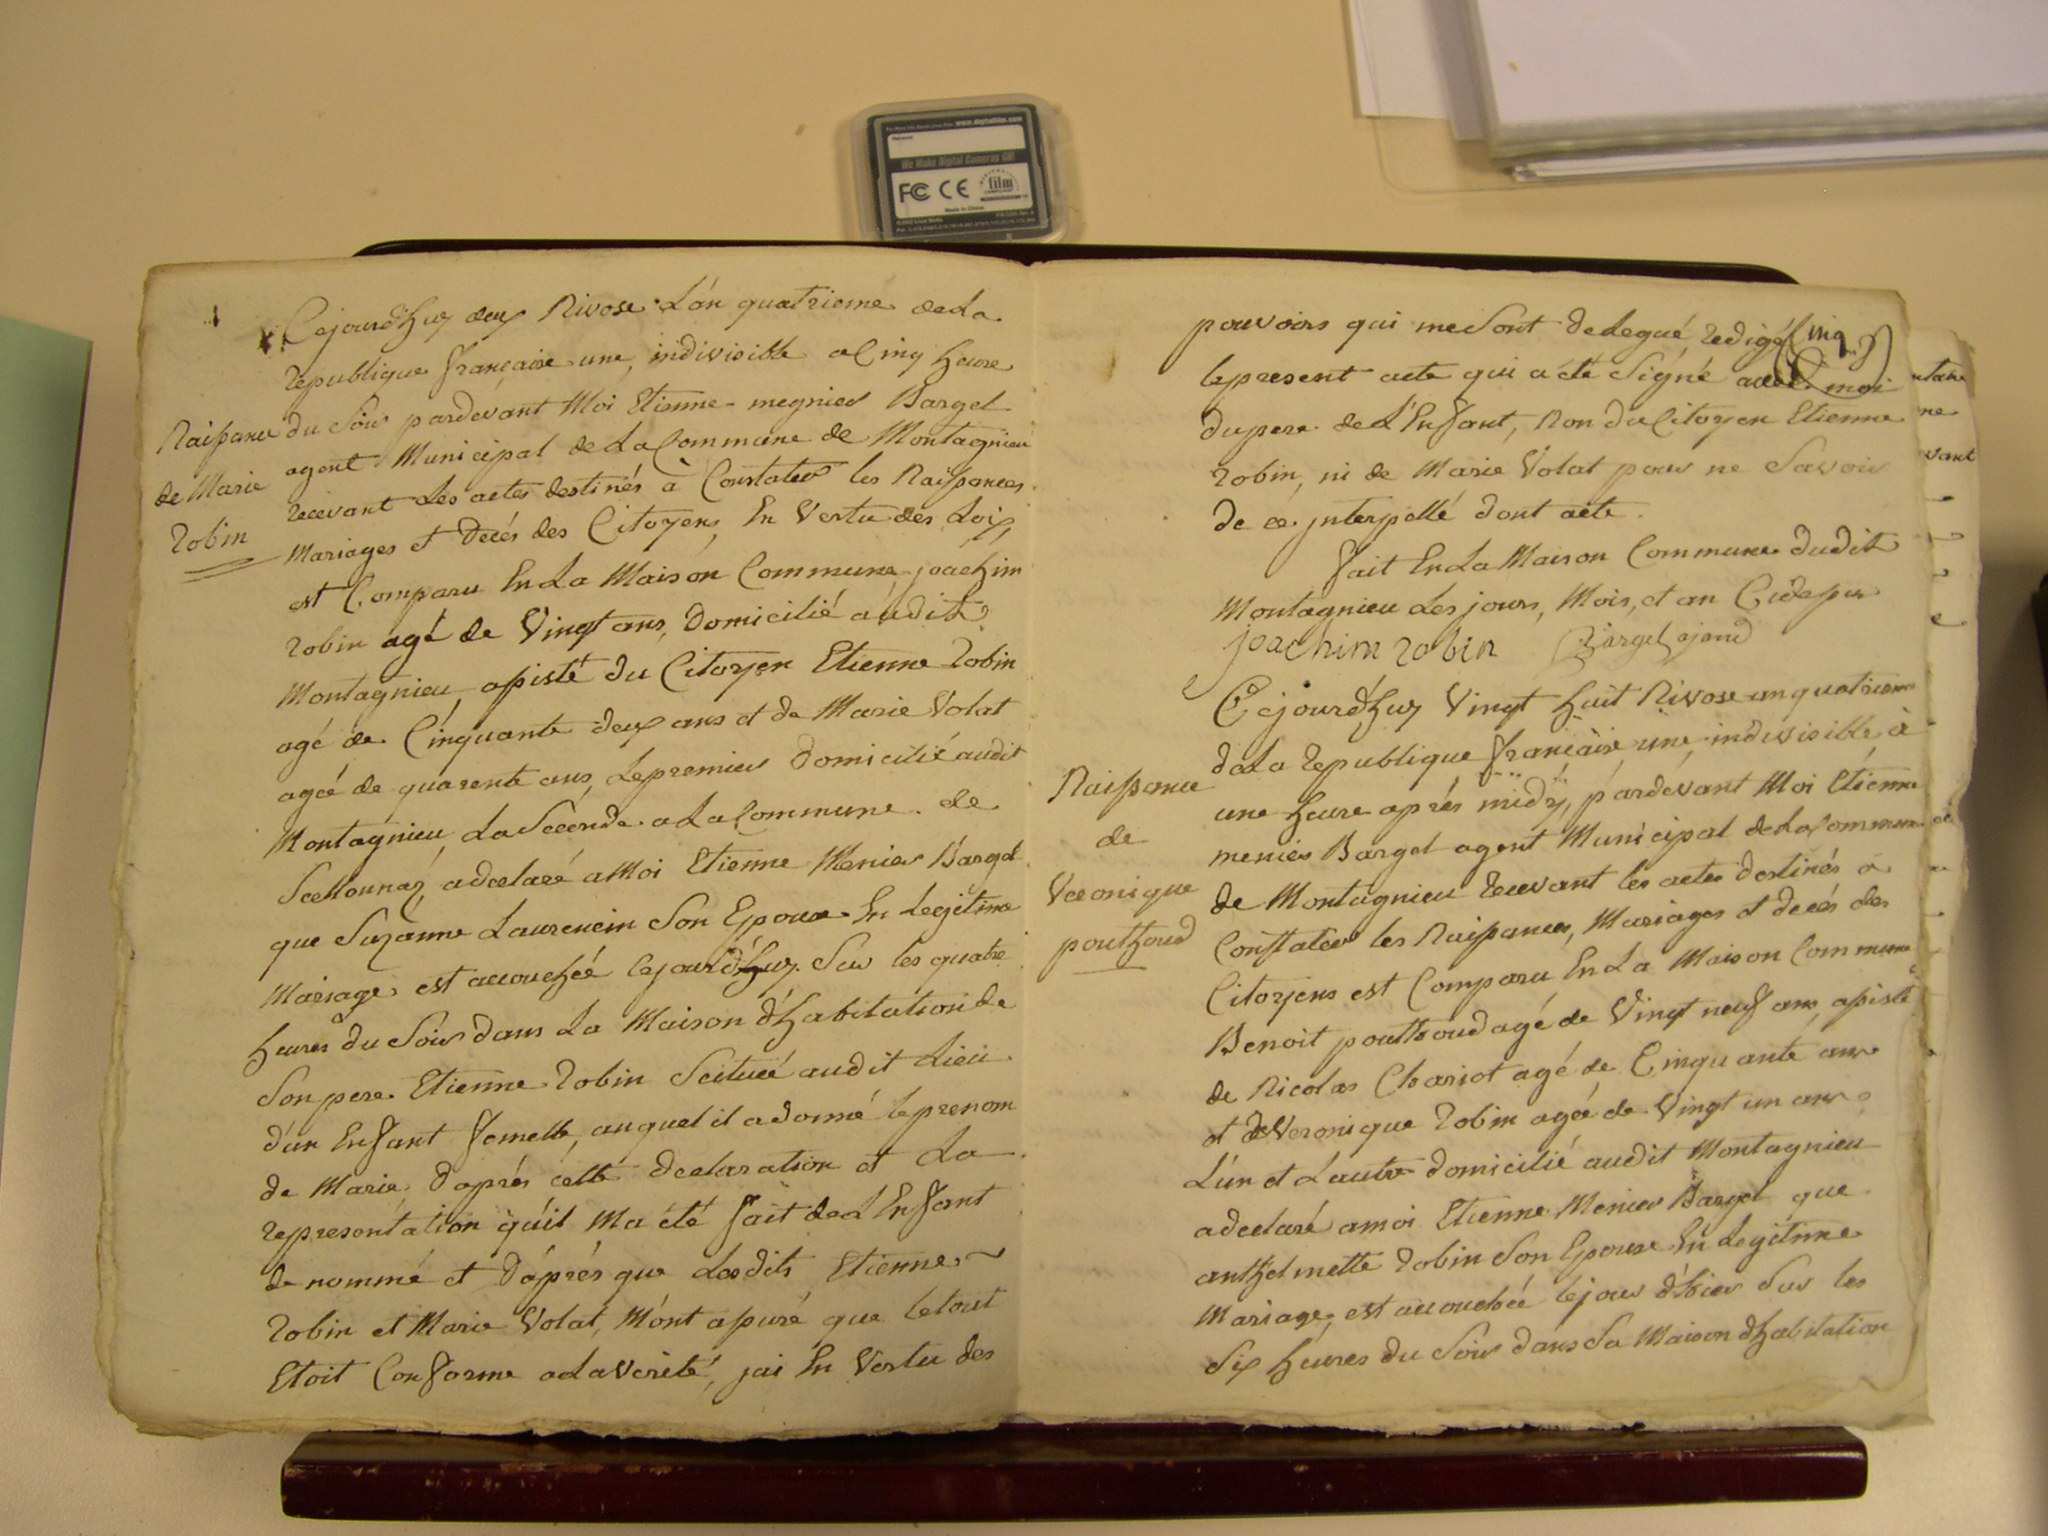 www.digitalfilm.com
We Make Digital Cameras GO!
FC CE film
Made in China
Naissance
de Marie
Robin
Cejourd'huy deux Nivose L'an quatrieme de La
republique française une, indivisible a Cinq heure
du Soir pardevant Moi Etienne megnier Bargel
agent Municipal de La Commune de Montagnieu
recevant Les actes destinés à Constater les Naissances
Mariages et Decés des Citoyens, En Vertu des Loix,
est Comparu En La Maison Commune, joachim
Robin agé de Vingt ans, domicilié audit
Montagnieu, assisté du Citoyen Etienne Robin
agé de Cinquante deux ans et de Marie Volat
agée de quarente ans, Le premier domicilié audit
Montagnieu, La Seconde a La Commune de
adeclaré a Moi Etienne Menier Bargel
que Suzanne Laurencin Son Epouse En Legitime
Mariage est accouchée Cejourd'huy Sur les quatre
heures du Soir dans La Maison d'habitation de
Son pere Etienne Robin Scituée audit Lieu
d'un Enfant femelle, auquel il adonné le prenom
de Marie d'aprés cette declaration et La
representation qu'il Ma été fait de L'Enfant
denommé et d'aprés que Lesdits Etienne
Robin et Marie Volat, M'ont assuré que le tout
Etoit Conforme a La Verité, jai En Vertu des
Cinq
pouvoirs qui me Sont delegué redigé
lepresent acte qui a été Signé avec moi
du pere de L'Enfant, Non du Citoyen Etienne
Robin, ni de Marie Volat pour ne Savoir
de ce jnterpellé dont acte.
fait En La Maison Commune dudit
Montagnieu Les jours, Mois, et an Cidessus
joachim robin Bargel ajand
Naissance
de
Veronique
pouthoud
Cejourd'huy Vingt huit Nivose an quatrieme
de La republique française une indivisible, à
une heure aprés midy, pardevant Moi Etienne
menier Bargel agent Municipal de La Commune
de Montagnieu recevant les actes destinés a
Constater les Naissances, Mariages et decés des
Citoyens est Comparu En La Maison Commune
Benoit pouthoud agé de Vingt neuf ans, assisté
de Nicolas Chariot agé de Cinquante ans
et de Veronique Robin agée de Vingt un ans
L'un et Lautre domicilié audit Montagnieu
adeclaré amoi Etienne Menier Bargel que
anthelmette Robin Son Epouse En Legitime
Mariage, est accouchée lejour d'hier Sur les
Six heures du Soir dans Sa Maison d'habitation